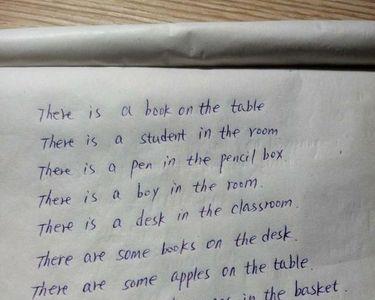 There is a book on the table
There is a student in the room
There is a pen in the pencil box
There is a boy in the room.
There is a desk in the classroom.
There are some books on the desk.
There are some apples on the table.
in the basket.